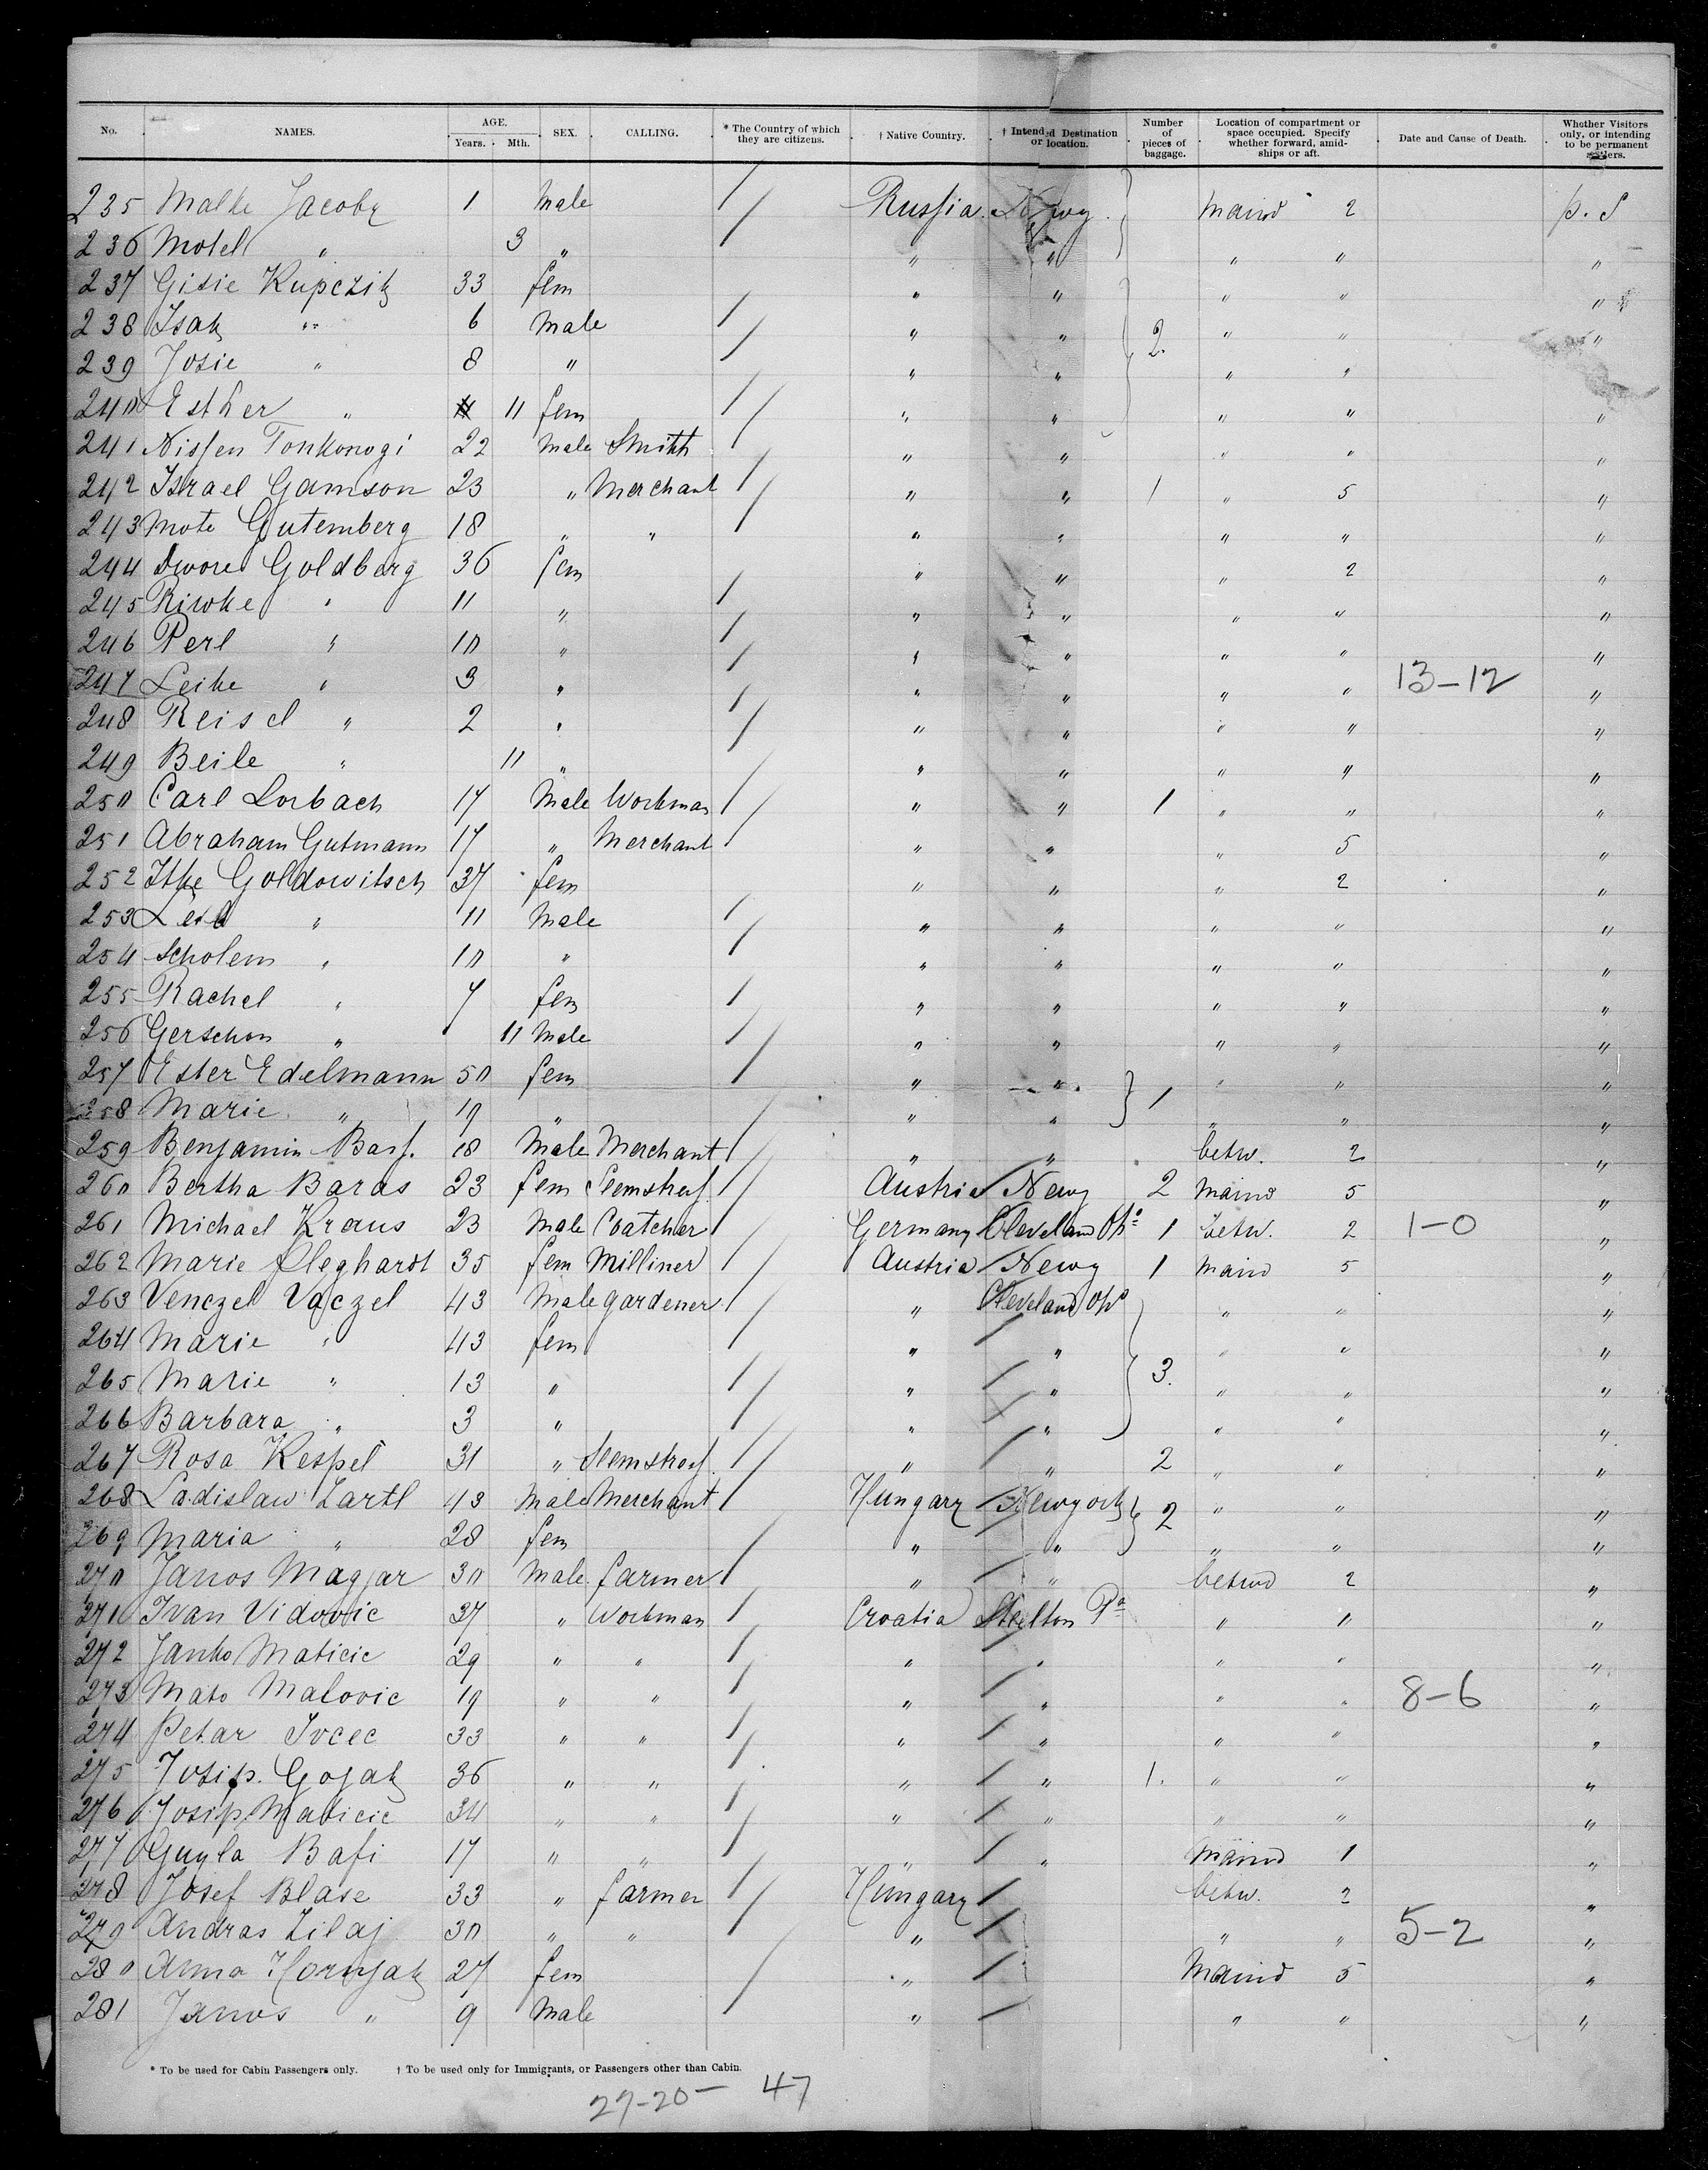 No. NAMES. AGE. Years. Mth. SEX. CALLING. * The Country of which they are citizens. † Native Country. † Intended Destination or location. Number of pieces of baggage. Location of compartment or space occupied. Specify whether forward, amidships or aft. Date and Cause of Death. Whether Visitors only, or intending to be permanent settlers.
235 Malke Jacoby 1 Male / Russia Newy. maind 2 p. S
236 Motel " 3 " / " " " " "
237 Gisie Kupczik 33 fem " " " " "
238 Isak " 6 Male / " " 2. " " "
239 Josie " 8 " / " " " " "
240 Esther " 11 fem / " " " " "
241 Nissen Tonkonogi 22 male Smith / " " " " "
242 Israel Gamson 23 " Merchant / " " 1 " 5 "
243 Mote Gutemberg 18 " " / " " " " "
244 Dwore Goldberg 36 fem " " " 2 "
245 Riwke " 11 " / " " " " "
246 Perl " 10 " / " " " " "
247 Leike " 3 " / " " " " 13-12 "
248 Reisel " 2 " / " " " " "
249 Beile " 11 " / " " " " "
250 Carl Lorbach 17 Male Workman / " " 1 " " "
251 Abraham Gutmann 17 " Merchant / " " " 5 "
252 Itke Goldowitsch 37 fem " " " 2 "
253 Leib " 11 Male / " " " " "
254 Scholem " 10 " / " " " " "
255 Rachel " 7 fem / " " " " "
256 Gerschon " 11 Male / " " " " "
257 Ester Edelmann 50 fem / " " 1 " " "
258 Marie " 19 " / " " " " "
259 Benjamin Bass. 18 Male Merchant / " " betw. 2 "
260 Bertha Baras 23 fem Seemstress / Austria Newy 2 maind 5 "
261 Michael Kraus 23 Male / Germany Cleveland Oho 1 betw. 2 1-0 "
262 Marie 35 fem Milliner / Austria Newy 1 maind 5 "
263 Venczel Vaczel 43 Male gardener / " Cleveland Oho " " "
264 Marie " 43 fem / " " 3. " " "
265 Marie " 13 " / " " " " "
266 Barbara " 3 " / " " " " "
267 Rosa Kespel 31 " Seemstress / " " 2 " " "
268 Ladislaw Zartl 43 Male Merchant / Hungary Newyork 2 " " "
269 Maria " 28 fem / " " " " "
270 Janos Magjar 30 Male farmer / " " betwd 2 "
271 Ivan Vidovic 37 " Workman / Croatia Steelton Pa " " "
272 Janko Maticic 29 " " / " " " " "
273 Mato Malovic 19 " " / " " " " 8-6 "
274 Petar Ivcec 33 " " / " " " " "
275 Josip Gojak 36 " " / " " 1. " " "
276 Josip Maticic 34 " " / " " " " "
277 Guyla Bafi 17 " " / " " maind 1 "
278 Josef Blase 33 " farmer / Hungary / betw. 2 "
279 Andras Zilaj 30 " " / " / " " 5-2 "
280 Anna Hornjak 27 fem / " / Maind 5 "
281 Janos " 9 male / " / " " "
* To be used for Cabin Passengers only. † To be used only for Immigrants, or Passengers other than Cabin.
27-20- 47